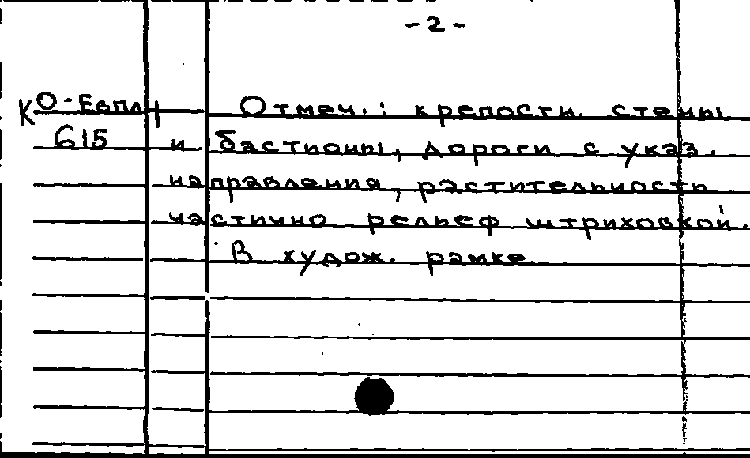 -2-
КО-Евпл Отмеч.: крепостн. стены
615 и бастионы, дороги с указ.
направления, растительность
частично рельеф штриховкой.
В худож. рамке